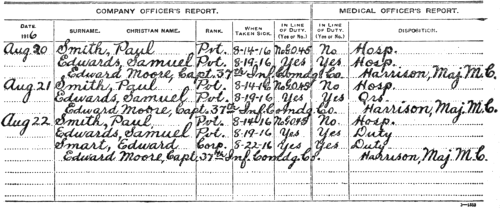 COMPANY OFFICER'S REPORT. MEDICAL OFFICER'S REPORT.
DATE. 1916 SURNAME. CHRISTIAN NAME. RANK. WHEN TAKEN SICK. IN LINE OF DUTY. (Yes or No.) IN LINE OF DUTY. (Yes or No.) DISPOSITION.
Aug. 20 Smith, Paul Pvt. 8-14-16 No No Hosp.
Edwards, Samuel Pvt. 8-19-16 Yes Yes Hosp.
Edward Moore, Capt. 37th Inf. Comdg. Co. Harrison, Maj. M.C.
Aug 21 Smith, Paul Pvt. 8-14-16 No No Hosp.
Edwards, Samuel Pvt. 8-19-16 Yes Yes Qrs.
Edward Moore, Capt. 37th Inf. Comdg. Co. Harrison, Maj. M.C.
Aug 22 Smith, Paul Pvt. 8-14-16 No No. Hosp.
Edwards, Samuel Pvt. 8-19-16 Yes Yes Duty
Smart, Edward Corp. 8-22-16 Yes Yes Duty
Edward Moore, Capt. 37th Inf. Comdg. Co. Harrison, Maj. M.C.